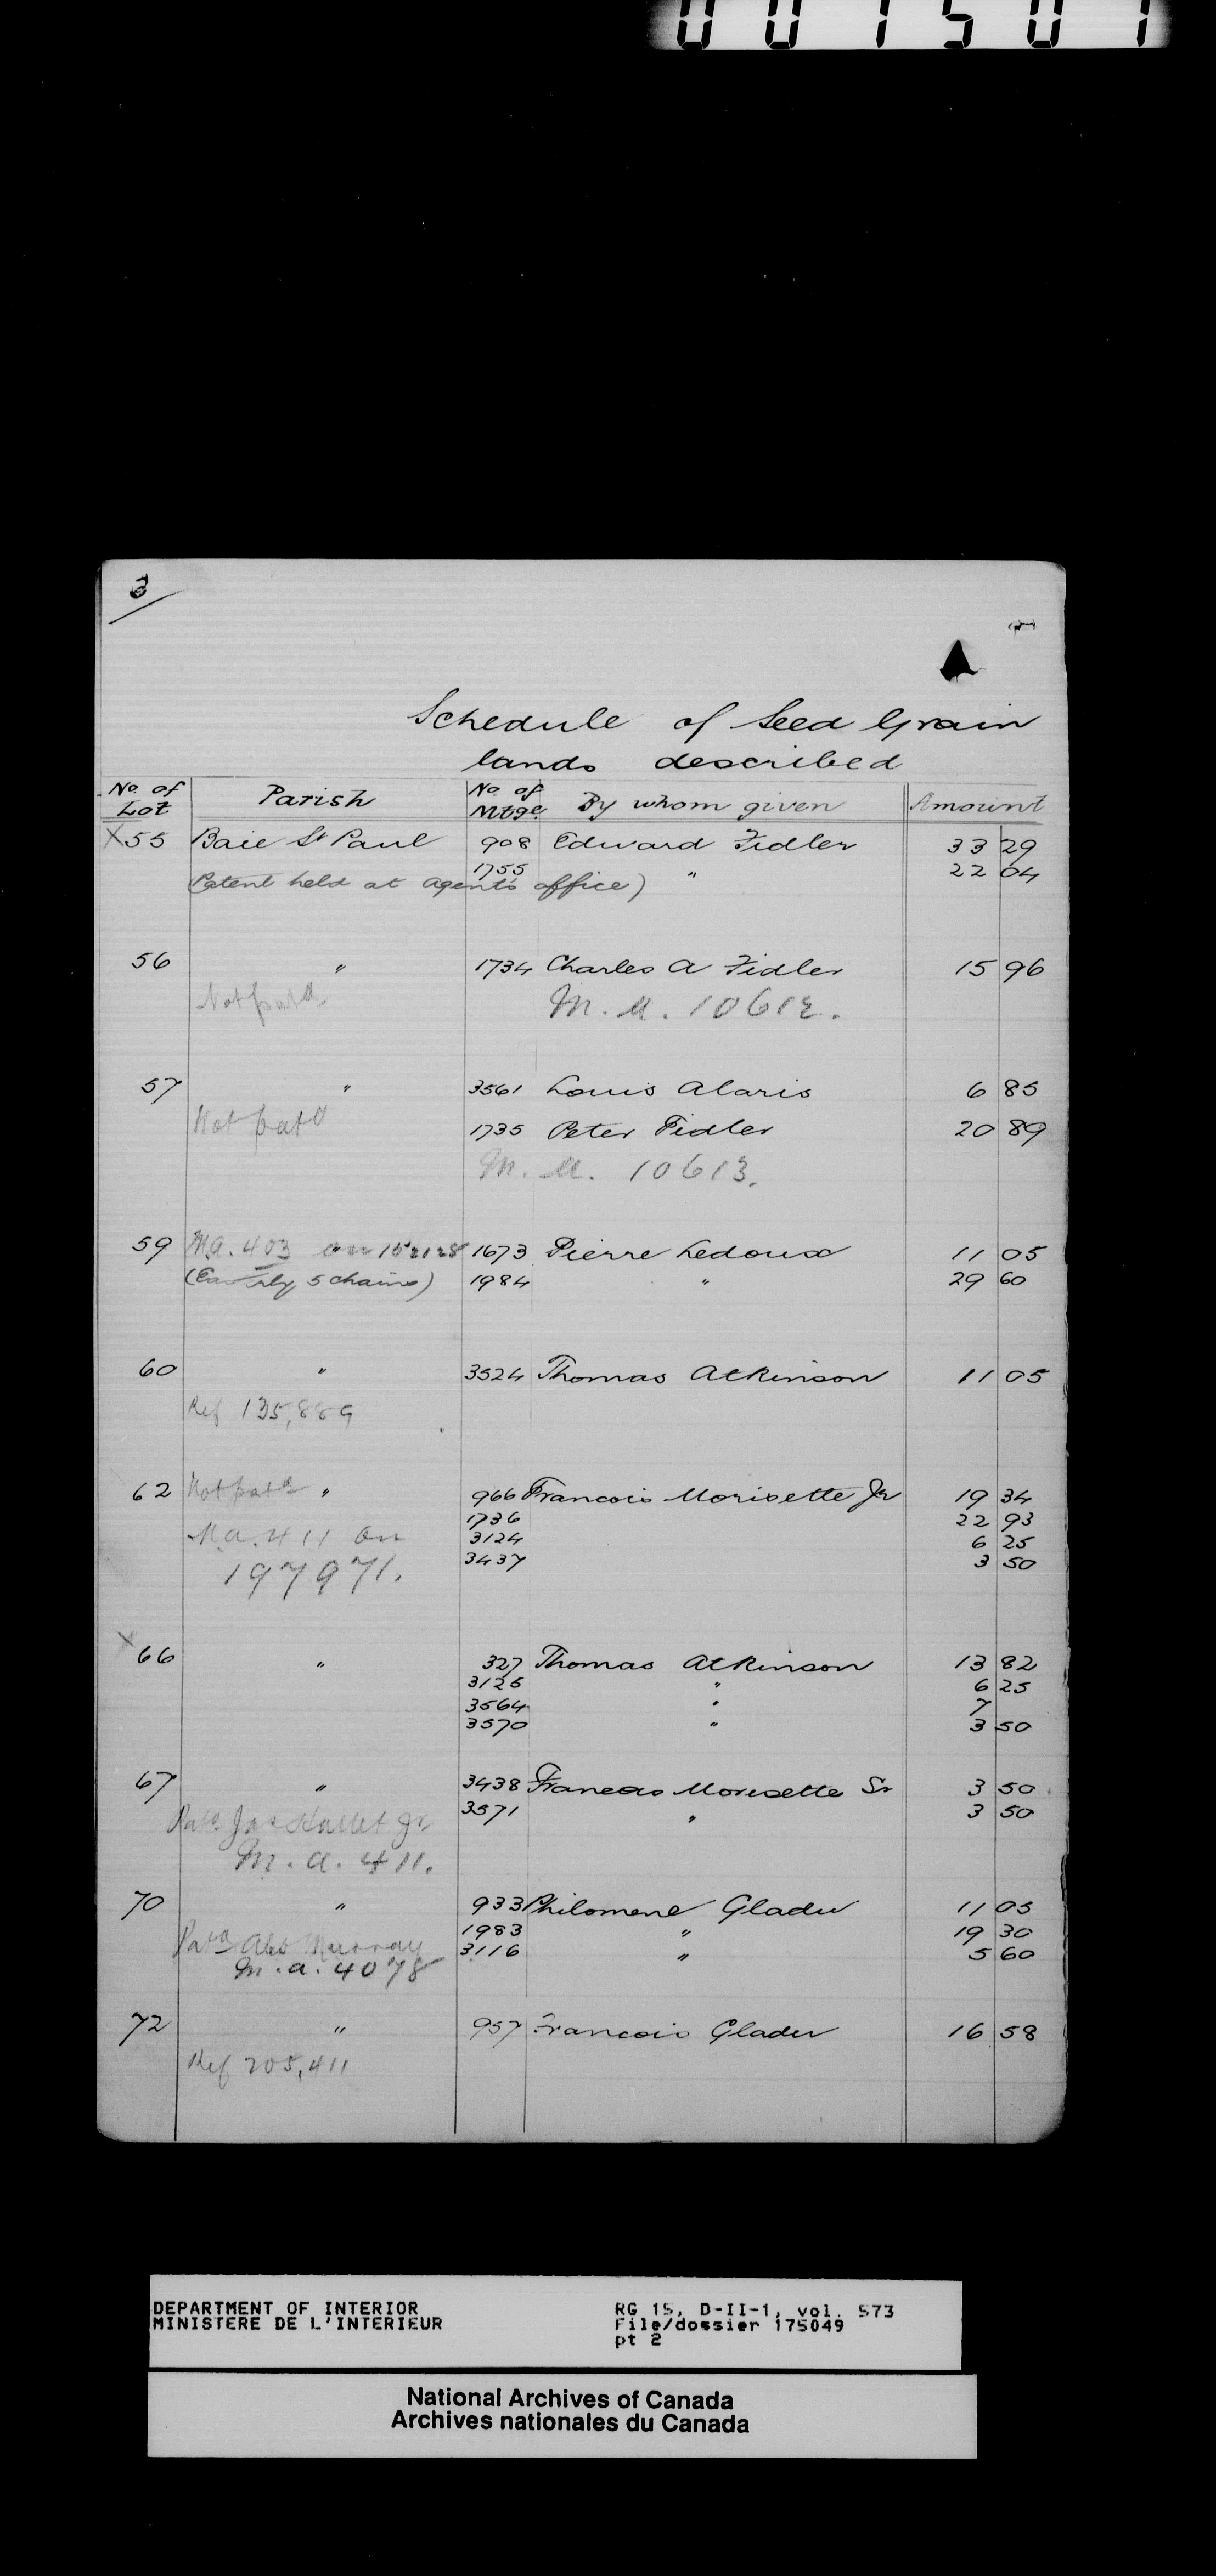 001501
3
Schedule of Seed Grain
lands described
No. of Lot Parish No of Mtge. By whom given Amount
X55 Baie St Paul 908 Edward Fidler 33 29
1755 " 22 04
(Patent held at agents office)
56 " 1734 Charles A Fidler 15 96
Not patd. M.A. 10612.
57 " 3561 Louis Alaris 6 85
Not patd 1735 Peter Fidler 20 89
M.A. 10613.
59 M.A. 403 on 1673 Pierre Ledoux 11 05
(Easterly 5 chains) 1984 " 29 60
60 " 3524 Thomas Atkinson 11 05
Ref 135,889
62 Not patd " 966 Francois Morisette Jr 19 34
1736 22 93
M.A. 411 on 3124 6 25
197971. 3437 3 50
X66 " 327 Thomas Atkinson 13 82
3125 " 6 25
3564 " 7
3570 " 3 50
67 " 3438 Francois Morisette Sr 3 50
3571 " 3 50
Patd Jas Jr
M.A. 411.
70 " 933 Philomene Gladu 11 05
1983 " 19 30
Patd Murray 3116 " 5 60
M.A. 4078
72 " 957 Francois Gladu 16 58
Ref 205,411
DEPARTMENT OF INTERIOR RG 15, D-II-1, vol. 573
MINISTERE DE L'INTERIEUR File/dossier 175049
pt 2
National Archives of Canada
Archives nationales du Canada